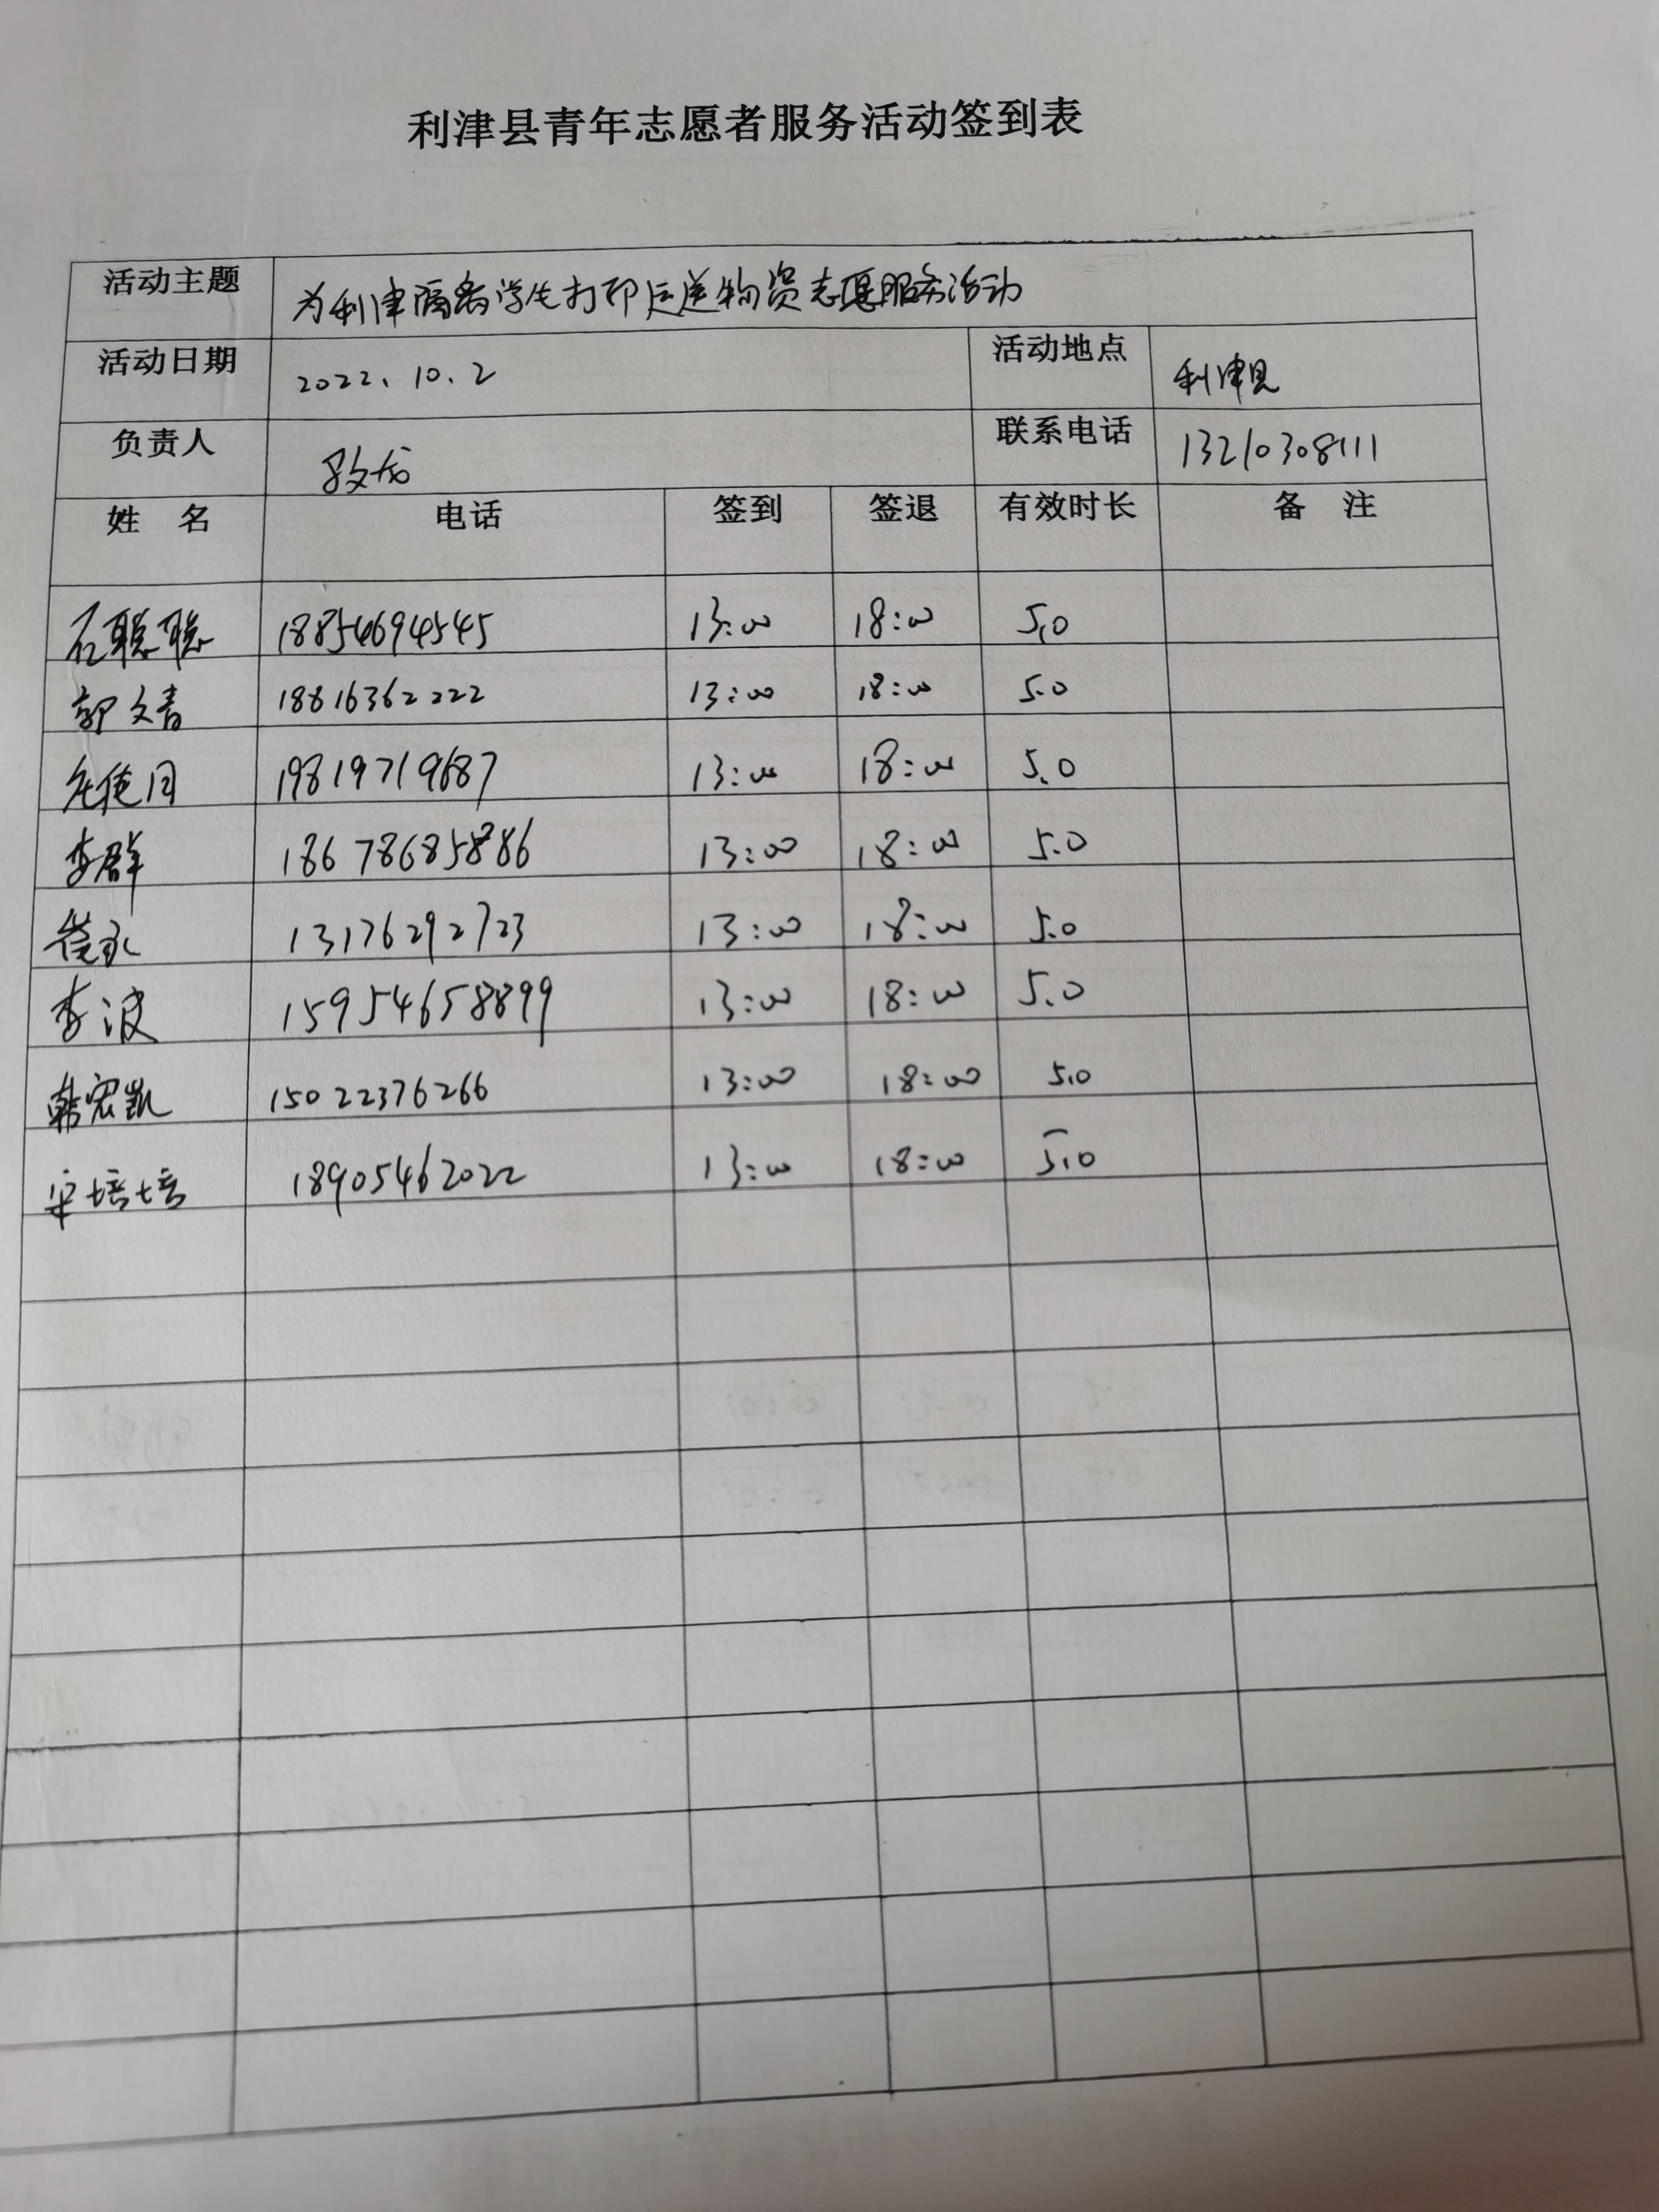 利津县青年志愿者服务活动签到表
活动主题 为利津隔离学生打印运送物资志愿服务活动
活动日期 2022、10、2 活动地点 利津县
负责人 联系电话 13210308111
姓 名 电话 签到 签退 有效时长 备 注
石聪聪 18854694545 13:00 18:00 5.0
郭文青 18816362222 13:00 18:00 5.0
19819719687 13:00 18:00 5.0
李群 18678685886 13:00 18:00 5.0
崔永 13176292723 13:00 18:00 5.0
李波 15954658899 13:00 18:00 5.0
韩宏凯 15022376266 13:00 18:00 5.0
宋培培 18905462022 13:00 18:00 5.0